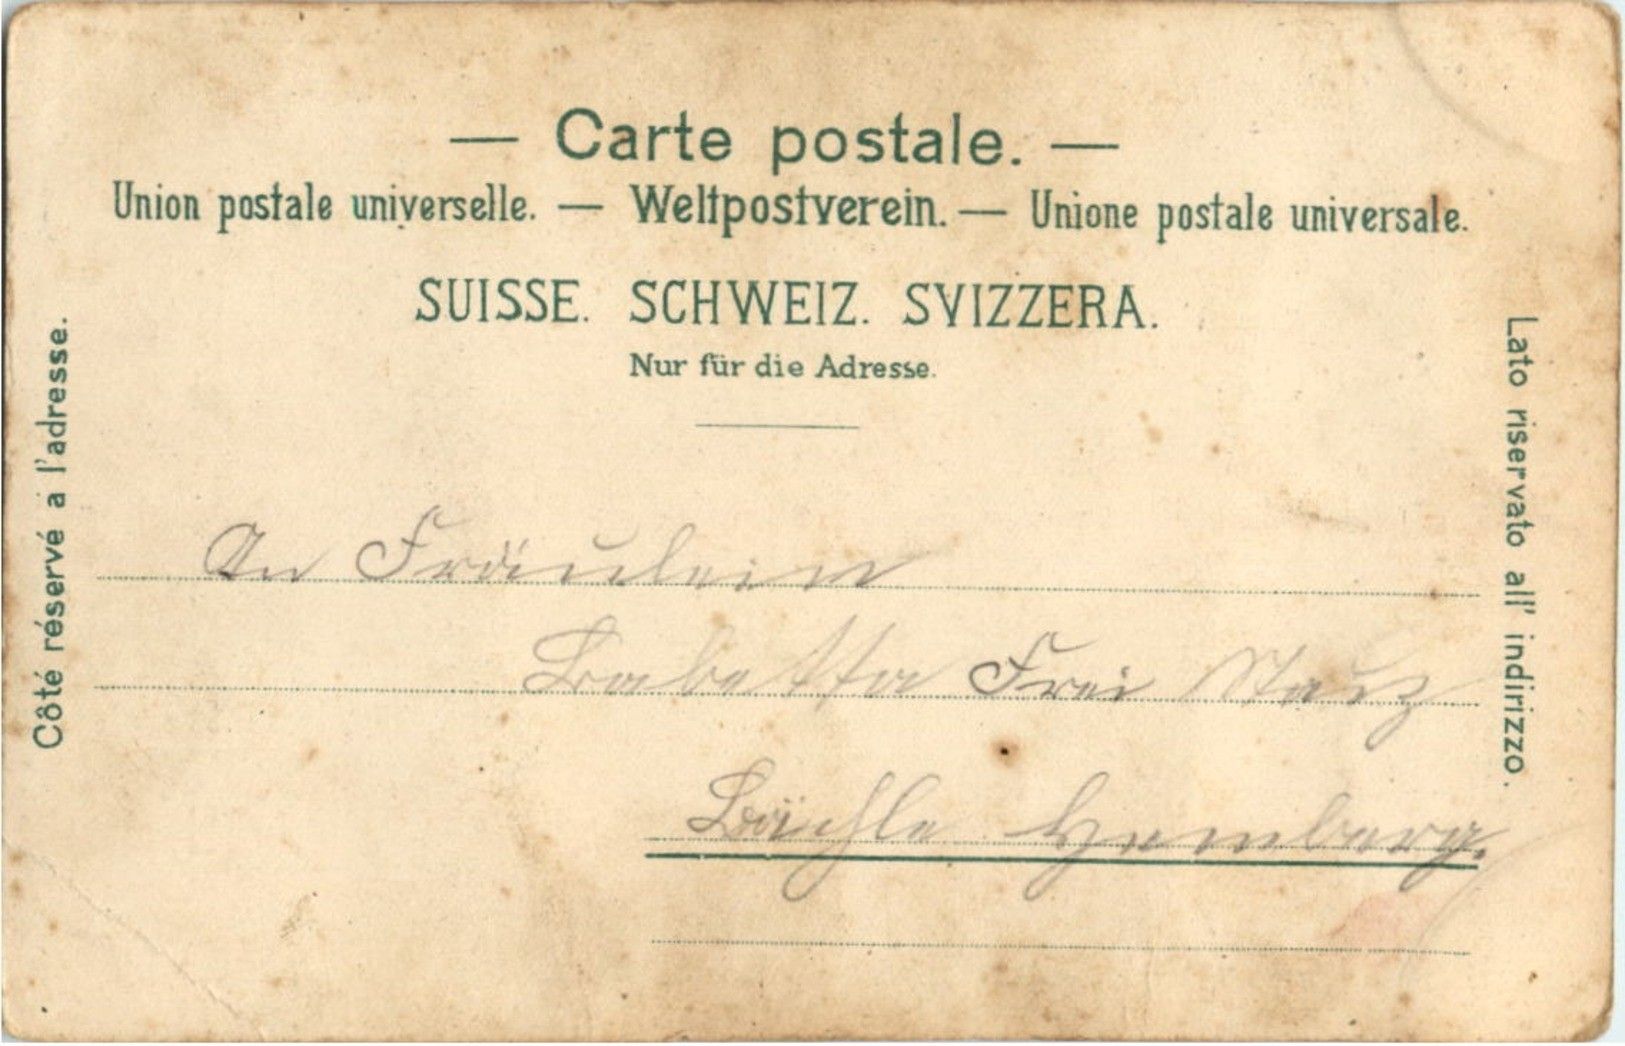 — Carte postale. —
Union postale universelle. — Weltpostverein. — Unione postale universale.
SUISSE. SCHWEIZ. SVIZZERA.
Nur für die Adresse.
Côté réservé a l'adresse.
Lato riservato all' indirizzo.
An Fräulein
Babetta Frei
Bächle Hemberg.